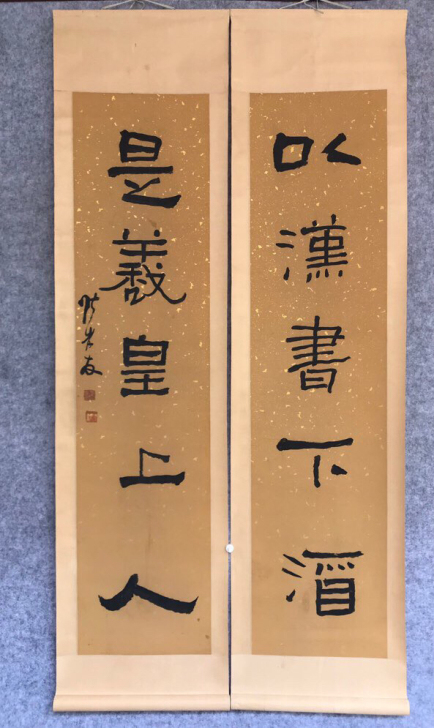 以漢書下酒
是羲皇上人